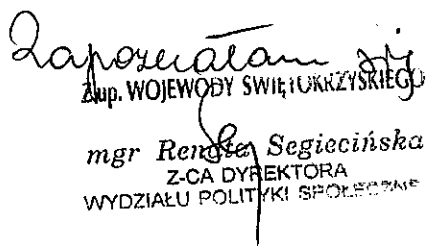 Zapoznałam się
Z up. WOJEWODY ŚWIĘTOKRZYSKIEGO
mgr Renata Segiecińska
Z-CA DYREKTORA
WYDZIAŁU POLITYKI SPOŁECZNEJ